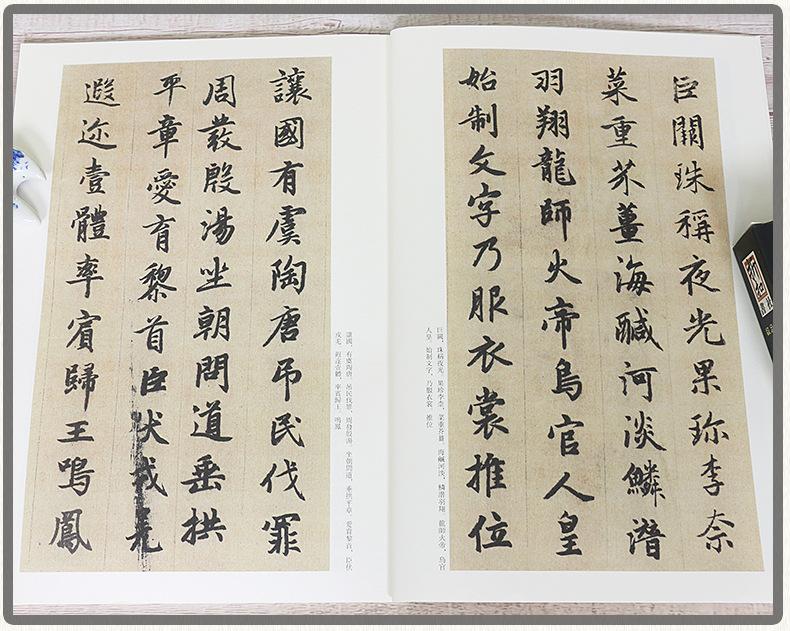 巨闕珠稱夜光果珎李柰
菜重芥薑海鹹河淡鱗潛
羽翔龍師火帝鳥官人皇
始制文字乃服衣裳推位
巨闕，珠稱夜光。果珍李柰，菜重芥薑。海鹹河淡，鱗潛羽翔。龍師火帝，鳥官
人皇。始制文字，乃服衣裳。推位
讓國有虞陶唐弔民伐罪
周發殷湯坐朝問道垂拱
平章愛育黎首臣伏戎羌
遐迩壹體率賓歸王鳴鳳
讓國，有虞陶唐。弔民伐罪，周發殷湯。坐朝問道，垂拱平章。愛育黎首，臣伏
戎羌。遐邇壹體，率賓歸王。鳴鳳